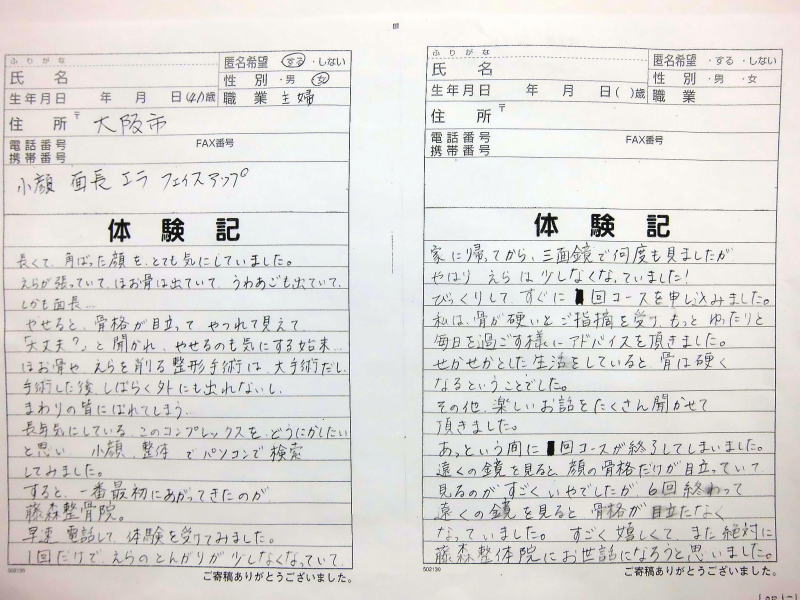 ふりがな
氏 名
匿名希望 ・する ・しない
性 別 ・男 ・女
生年月日 年 月 日(41)歳
職 業 主婦
住 所 〒 大阪市
電話番号 FAX番号
携帯番号
小顔 面長 エラ フェイスアップ
体験記
長くて、角ばった顔を、とても気にしていました。
えらが張っていて、ほお骨は出ていて、うわあごも出ていて、
しかも面長…
やせると、骨格が目立って やつれて見えて、
「大丈夫?」と聞かれ、やせるのも気にする始末…
ほお骨や、えらを削る整形手術は、大手術だし、
手術した後、しばらく外にも出れないし、
まわりの皆にばれてしまう…
長年気にしている、このコンプレックスを、どうにかしたい
と思い 小顔、整体 でパソコンで検索
してみました。
すると、一番最初にあがってきたのが
藤森整骨院。
早速、電話して、体験を受けてみました。
1回だけで、えらのとんがりが少しなくなっていて、
502130
ご寄稿ありがとうございました。
ふりがな
氏 名
匿名希望 ・する ・しない
性 別 ・男 ・女
生年月日 年 月 日( )歳
職 業
住 所 〒
電話番号 FAX番号
携帯番号
体験記
家に帰ってから、三面鏡で何度も見ましたが
やはり えらは少しなくなっていました!
びっくりして、すぐに 回コースを申し込みました。
私は、骨が硬いとご指摘を受け、もっと ゆったりと
毎日を過ごす様にアドバイスを頂きました。
せかせかとした生活をしていると、骨は硬く
なるということでした。
その他、楽しいお話をたくさん聞かせて
頂きました。
あっという間に 回コースが終了してしまいました。
遠くの鏡を見ると、顔の骨格だけが目立っていて
見るのが すごく いやでしたが、6回終わって
遠くの鏡を見ると 骨格が目立たなく
なっていました。 すごく嬉しくて、また絶対に
藤森整体院にお世話になろうと思いました。
502130
ご寄稿ありがとうございました。